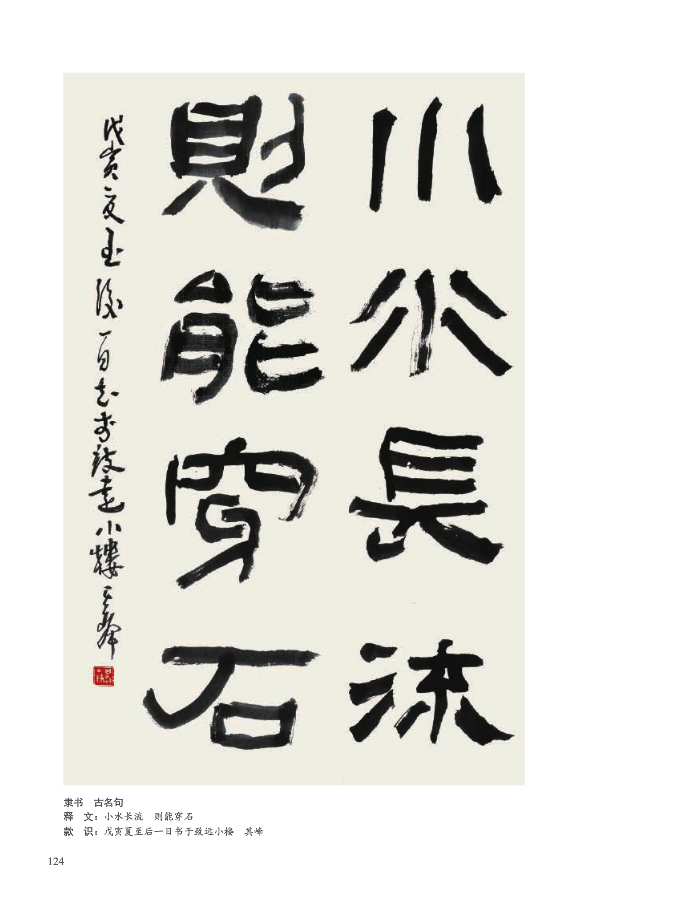 小水長流
則能穿石
戊寅夏至後一日書于致遠小樓 其峰
隶书　古名句
释　文：小水长流　则能穿石
款　识：戊寅夏至后一日书于致远小楼　其峰
124